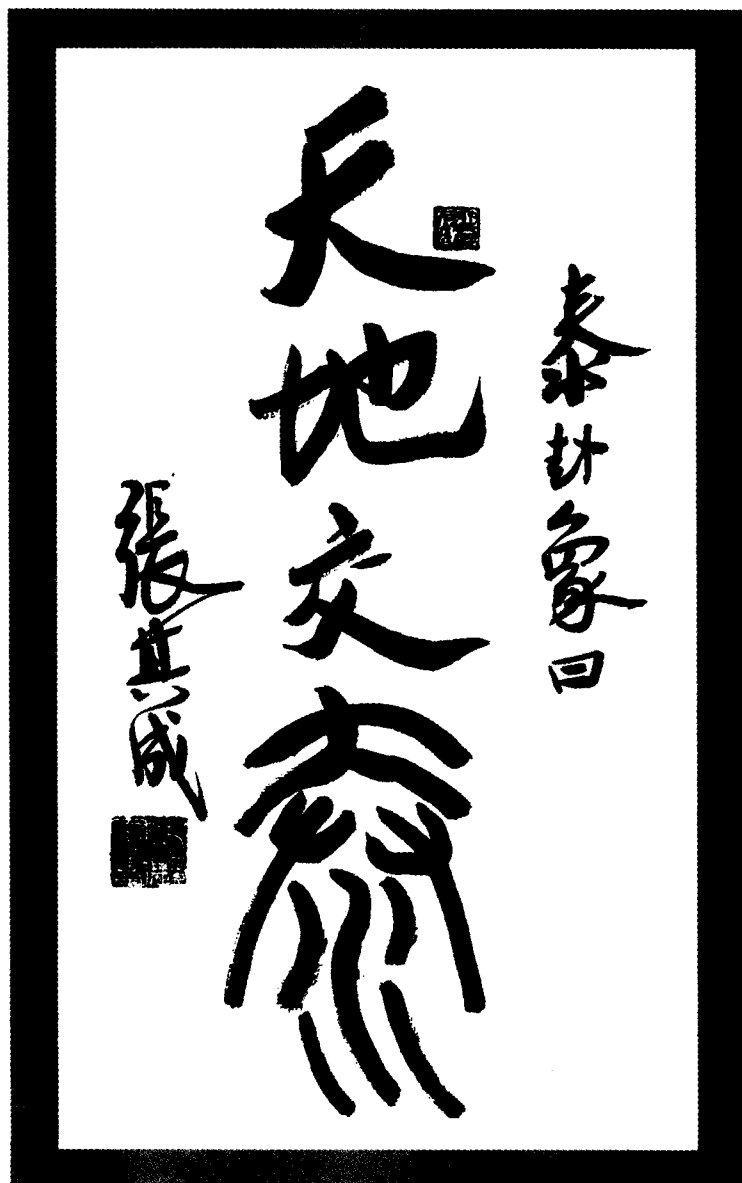 泰卦象曰
天地交泰
張其成